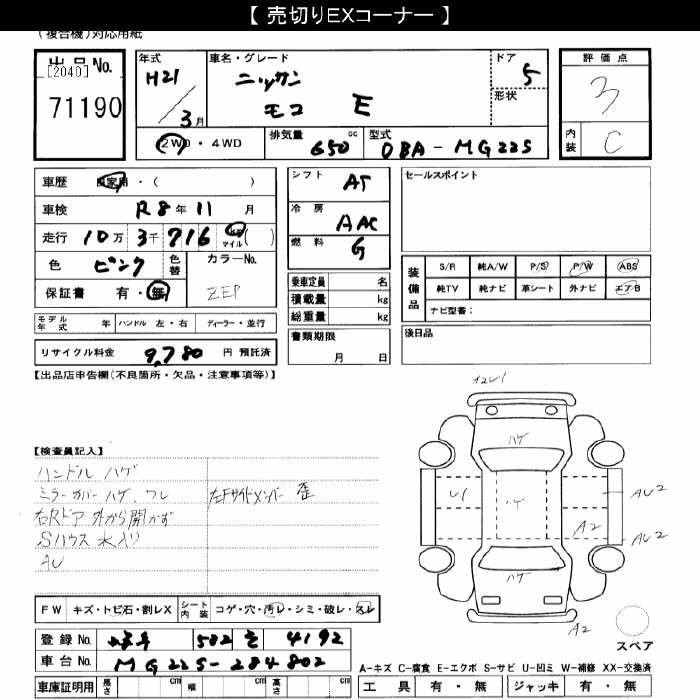 【 売切りEXコーナー 】
(複合機)対応用紙
出品No.
[2040]
71190
年式
H21
3月
車名・グレード
ニッサン
モコ E
ドア
5
形状
評価点
3
内装
C
2WD・4WD
排気量 650 cc
型式 DBA-MG22S
車歴 自家用・( )
車検 R8年11月
走行 10万3千716 マイル( )
色 ピンク 色替
カラーNo.
ZEP
保証書 有・無
シフト AT
冷房 AAC
燃料 G
乗車定員 名
積載量 kg
総重量 kg
書類期限
月 日
セールスポイント
装備品
S/R 純A/W P/S P/W ABS
純TV 純ナビ 革シート 外ナビ エアB
ナビ型番:
後日品
モデル年式 年 ハンドル 左・右 ディーラー・並行
リサイクル料金 9,780 円 預託済
【出品店申告欄(不良箇所・欠品・注意事項等)】
【検査員記入】
ハンドル ハゲ
ミラーカバー ハゲ、ワレ
左Fサイドメンバー 歪
右Rドア 外から開かず
Sハウス 水入り
AU
A2U1
ハゲ
U1
ハゲ
AU2
A2
AU2
ハゲ
A2
スペア
FW キズ・トビ石・割レX シート内装 コゲ・穴・汚レ・シミ・破レ・スレ
登録No. 582 4192
車台No. MG22S-284802
A-キズ C-腐食 E-エクボ S-サビ U-凹ミ W-補修 XX-交換済
車庫証明用 長さ cm 幅 cm 高さ cm
工具 有・無 ジャッキ 有・無